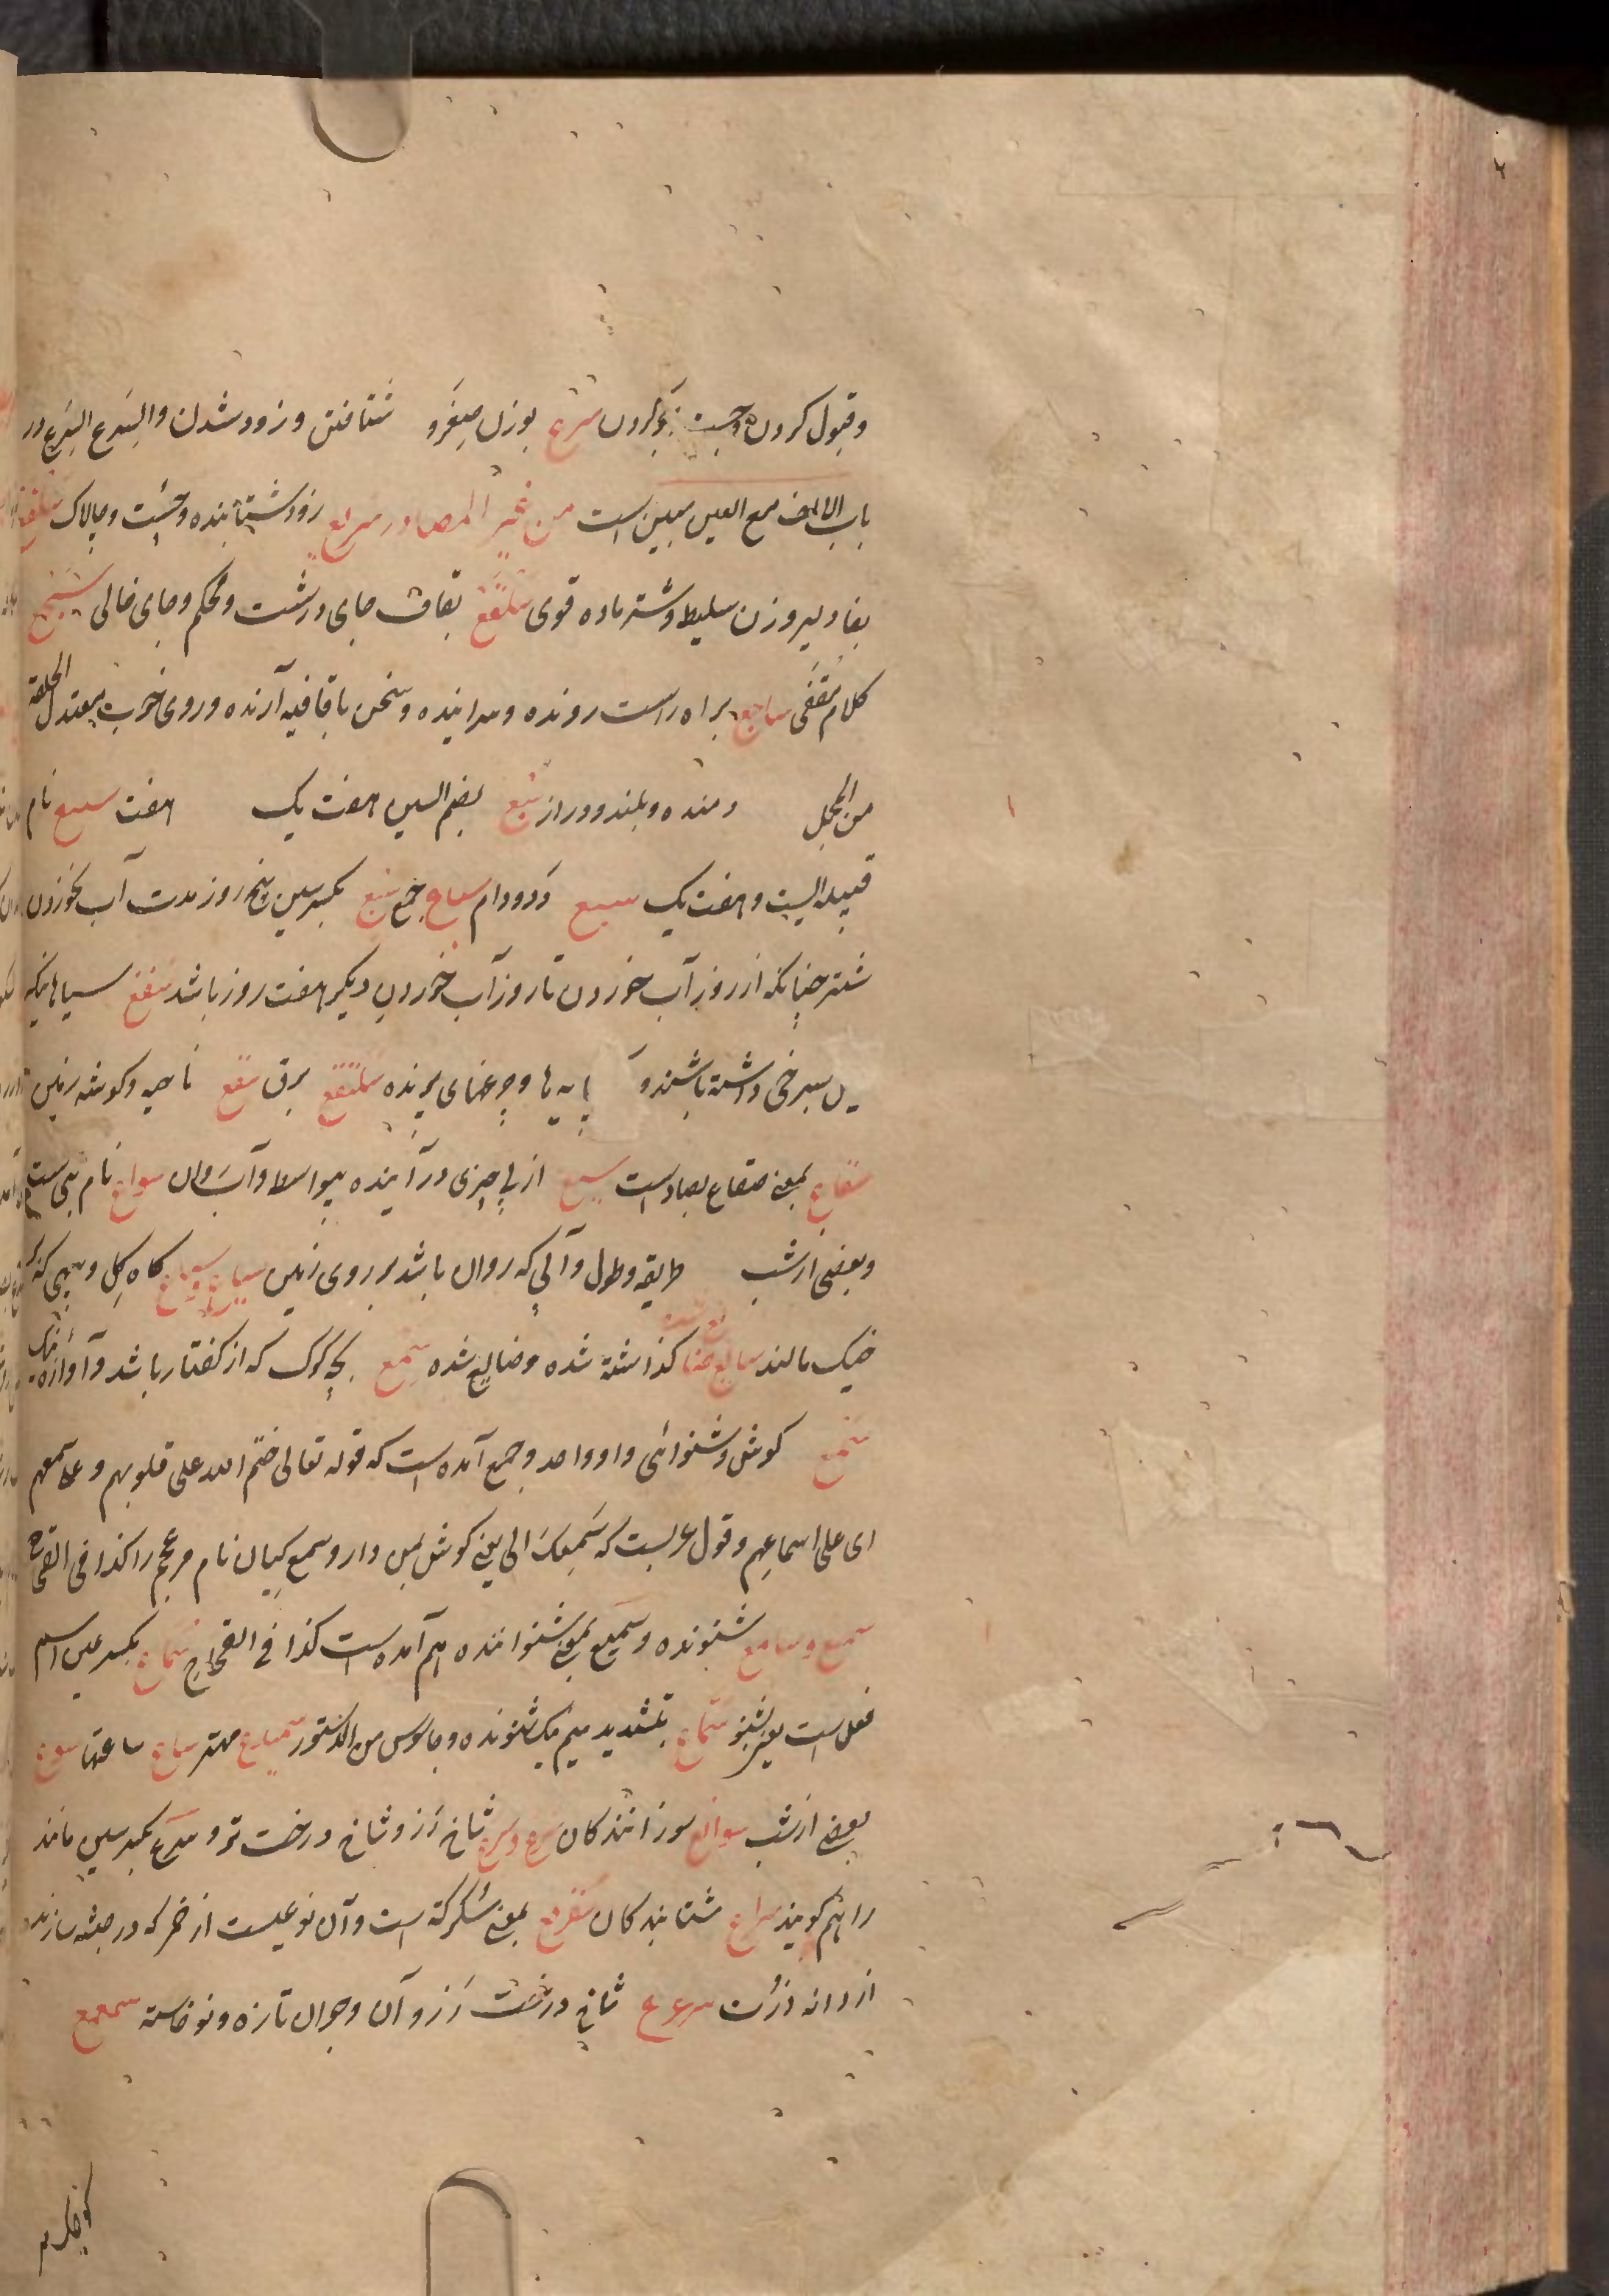 وقبول کردن سرع بوزن صغر و شتافتن و زود شدن والسرع السرع در
باب الالف مع العین مبین است من غیر المصادر سریع زود شتابنده و چست و چالاک سلفع
بفا دلیر و زن سلیط و شتر ماده قوی سلقع بقاف جای درشت و محکم و جای خالی سجع
کلام مقفی ساجع براه راست رونده و سراینده و سخن با قافیه آرنده و روی خوب معتدل الخلقة
من المجمل و منده و بلند و دراز سبع بضم السین هفت یک هفت سبع نام
قبیله ایست و هفت یک سبیع دد و دام سباع جمع سبع بکسر سین پنج روز مدت آب خوردن
شتر چنانکه از روز آب خوردن تا روز آب خوردن دیگر هفت روز باشد سفع سیاهانیکه
بسرخی داشته باشند و پایه ها و مرغهای پرنده سلنقع برق سقع ناحیه و کوشه زمین
سقاع بمعنی صقاع بصاد است سیع از پی چیزی در آینده بیواسطه و آب روان سواع نام بتی ست
و بعضی از شب طریقه و طول و آبی که روان باشد بر روی زمین سیاع و سیاع کاه گل و پیهی که
خیک مالند سایع ضایع کذاشته شده و ضایع شده سمع بچه گرک که از کفتار باشد و آوازه نیک
سمع کوش و شنوائی و او واحد و جمع آمده است که قوله تعالی ختم الله علی قلوبهم و علی سمعهم
ای علی اسماعهم و قول عربست که سمعک الی یعنی کوش بمن دار و سمع کیان نام مرغ را کذا فی القراح
سمیع و سامع شنونده و سمیع بمعنی شنواننده هم آمده است کذا فی القراح سماع بکسر عین اسم
فعل است یعنی بشنو سماع بتشدید میم نیک شنونده و جاسوس من الدستور سمیدع مهتر ساع ساعتها سوع
بعضی از شب سوافع سوزانندکان سرع و سرع شاخ رز و شاخ درخت تر و سرع بکسر سین مانند
را هم کویند سراع شتابندکان سقرقع بمعنی سکرکه است و آن نوعیست از خمر که در حبشه سازند
از دانه ذرت سرعرع شاخ درخت رز و آن و جوان تازه و نوخاسته سمعمع